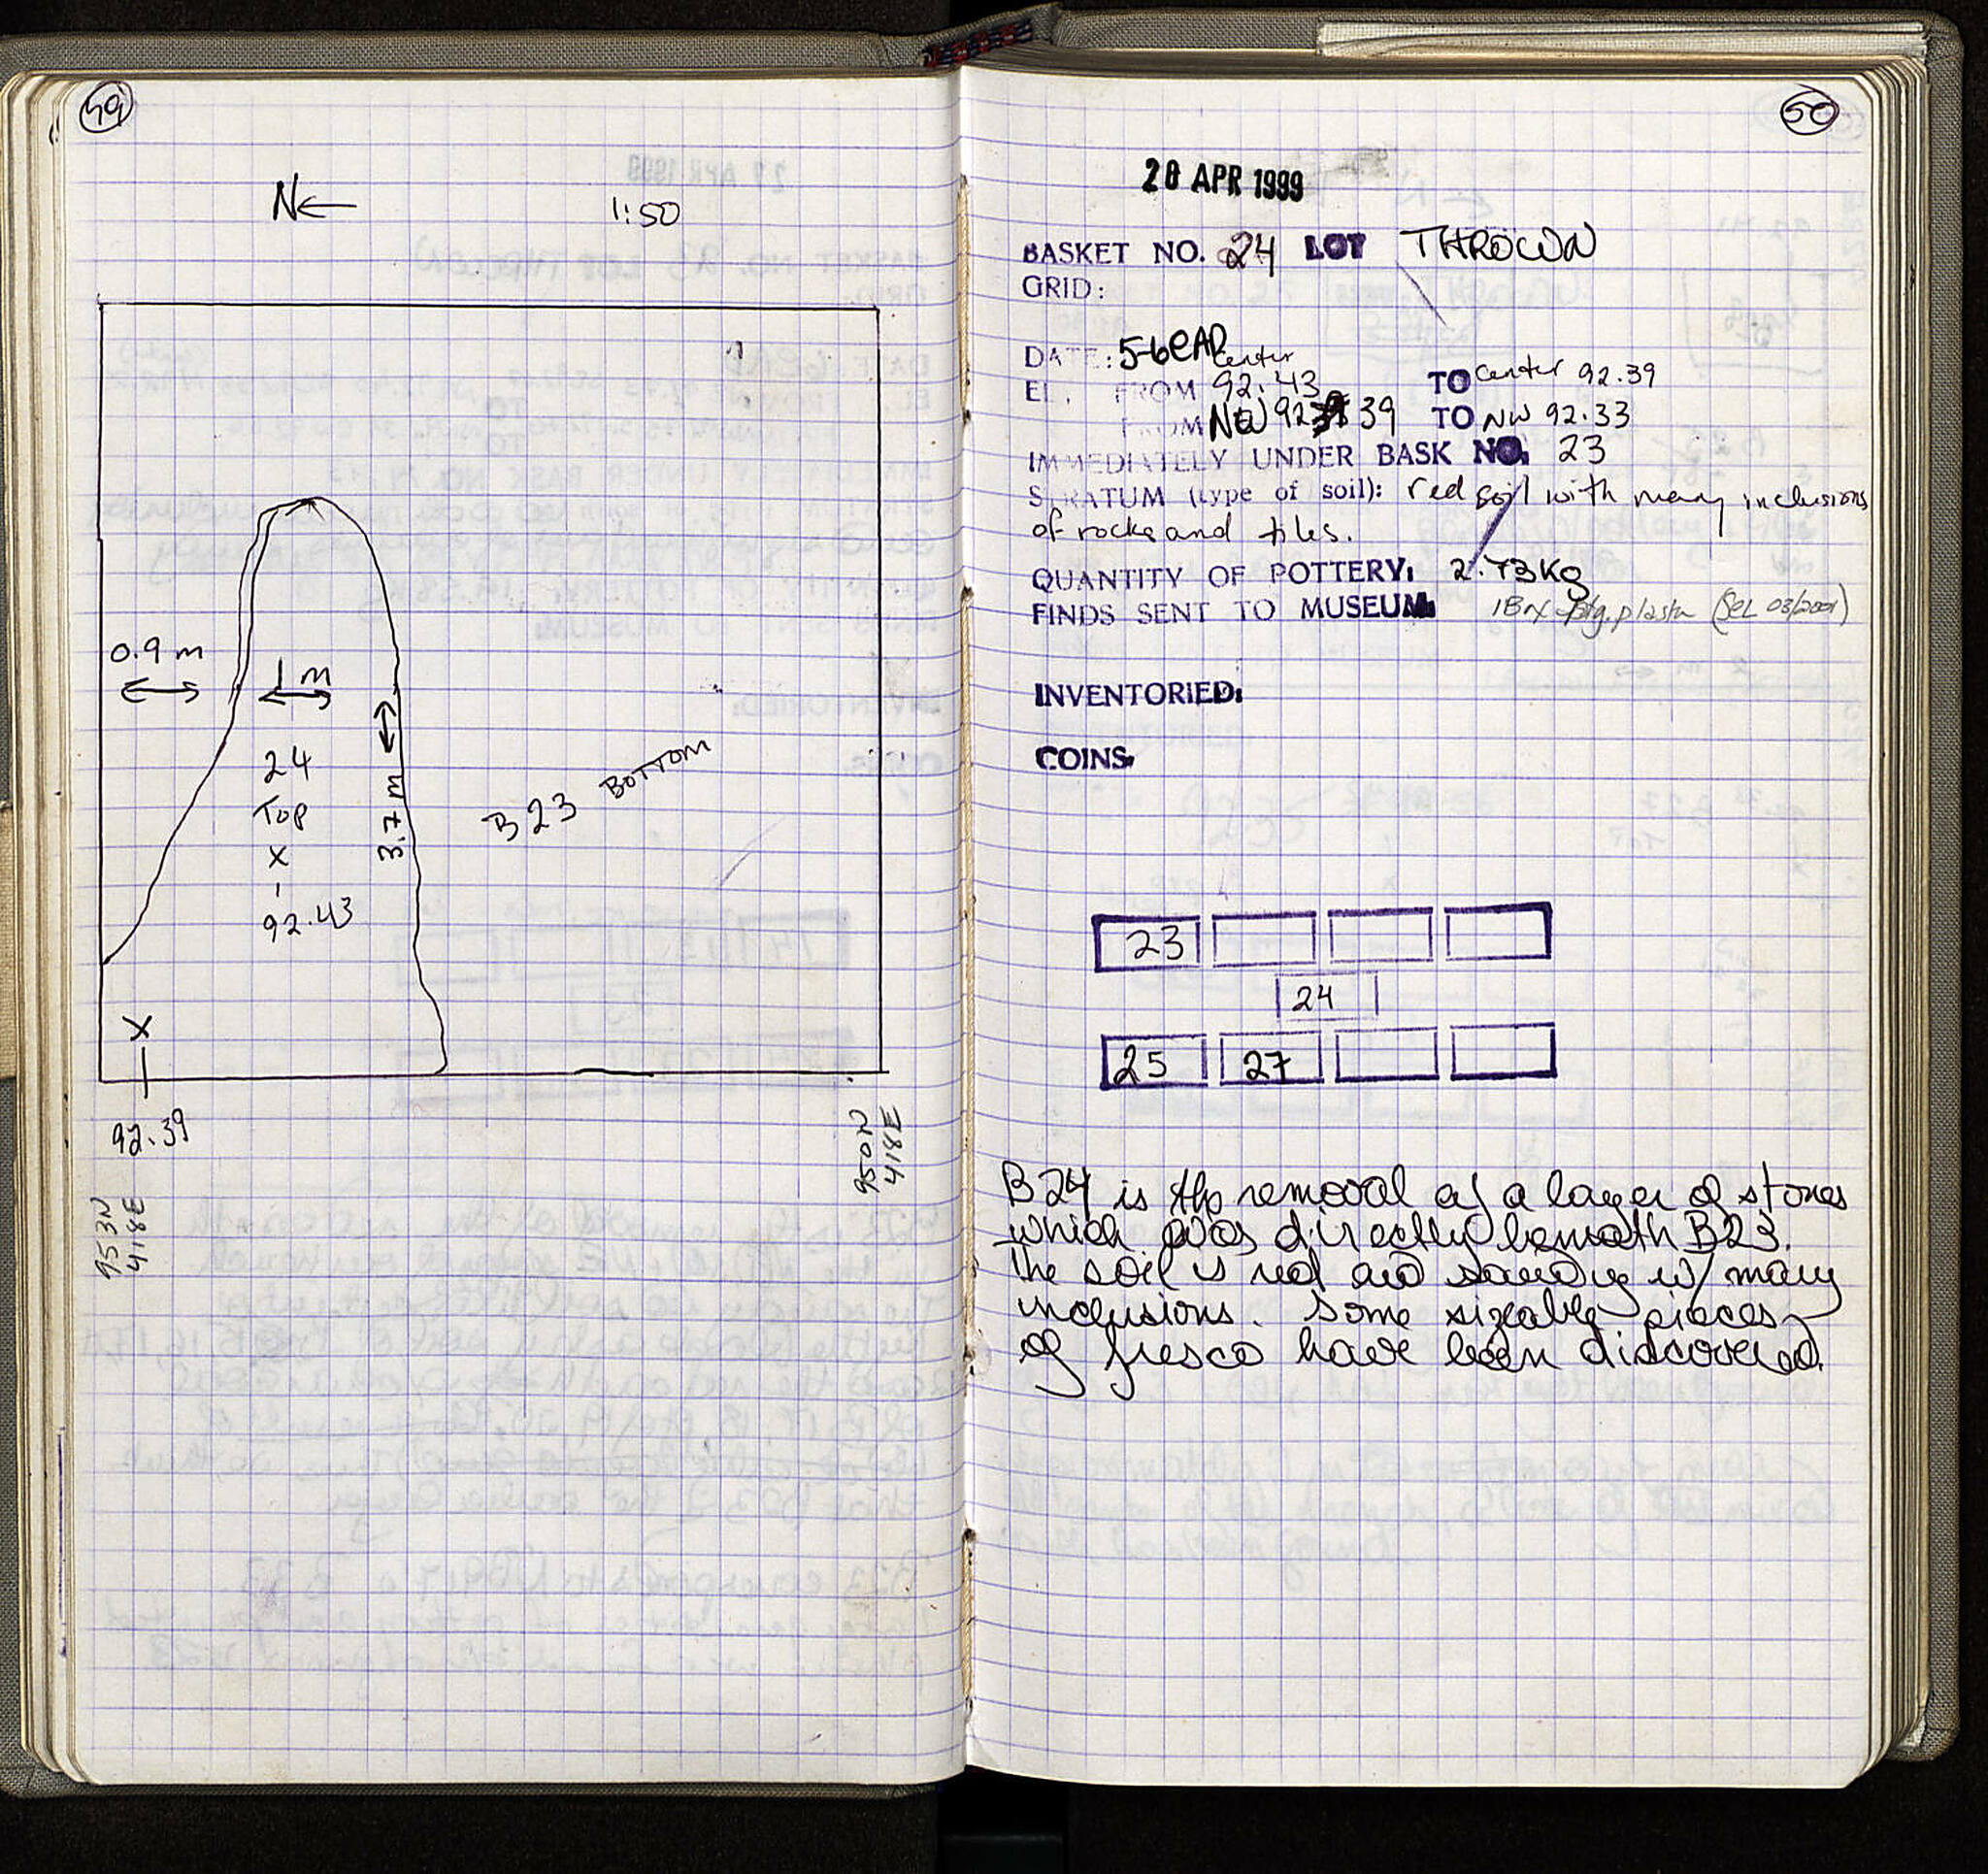 49
N← 1:50
0.9 m
1 m
24
Top
X
92.43
3.7 m
B23 BOTTOM
X
92.39
953N
418E
950N
418E
50
28 APR 1999
BASKET NO. 24 LOT THROWN
GRID:
DATE: 5-6 CAD
center
EL. FROM 92.43 TO center 92.39
FROM NW 92.39 TO NW 92.33
IMMEDIATELY UNDER BASK NO. 23
STRATUM (type of soil): red soil with many inclusions
of rocks and tiles.
QUANTITY OF POTTERY: 2.73Kg
FINDS SENT TO MUSEUM: 1Box ptg. plaster (SCL 03/2001)
INVENTORIED:
COINS:
23
24
25 27
B24 is the removal of a layer of stones
which was directly beneath B23.
the soil is red and sandy w/ many
inclusions. Some sizeable pieces
of fresco have been discovered.